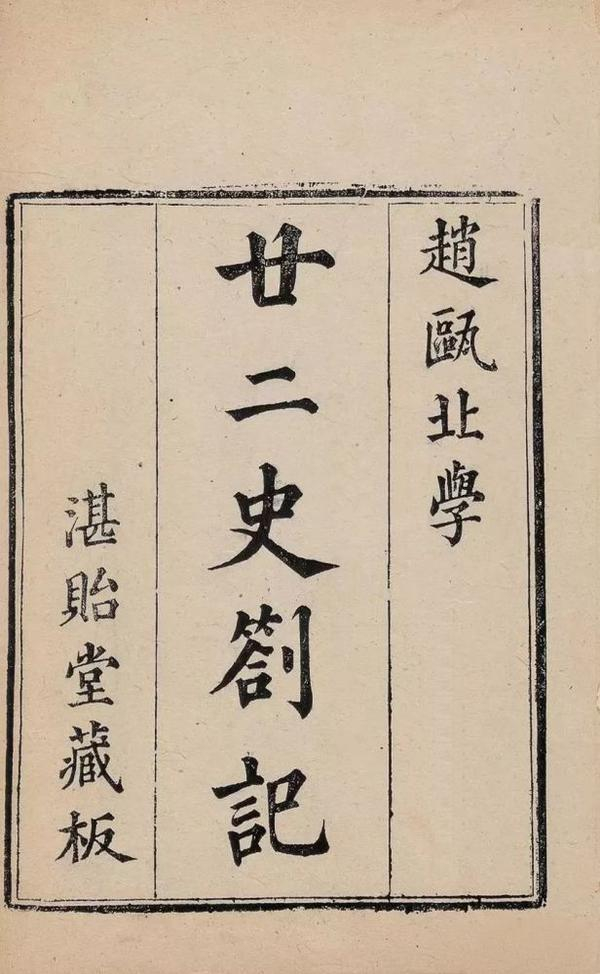 趙甌北學
廿二史劄記
湛貽堂藏板